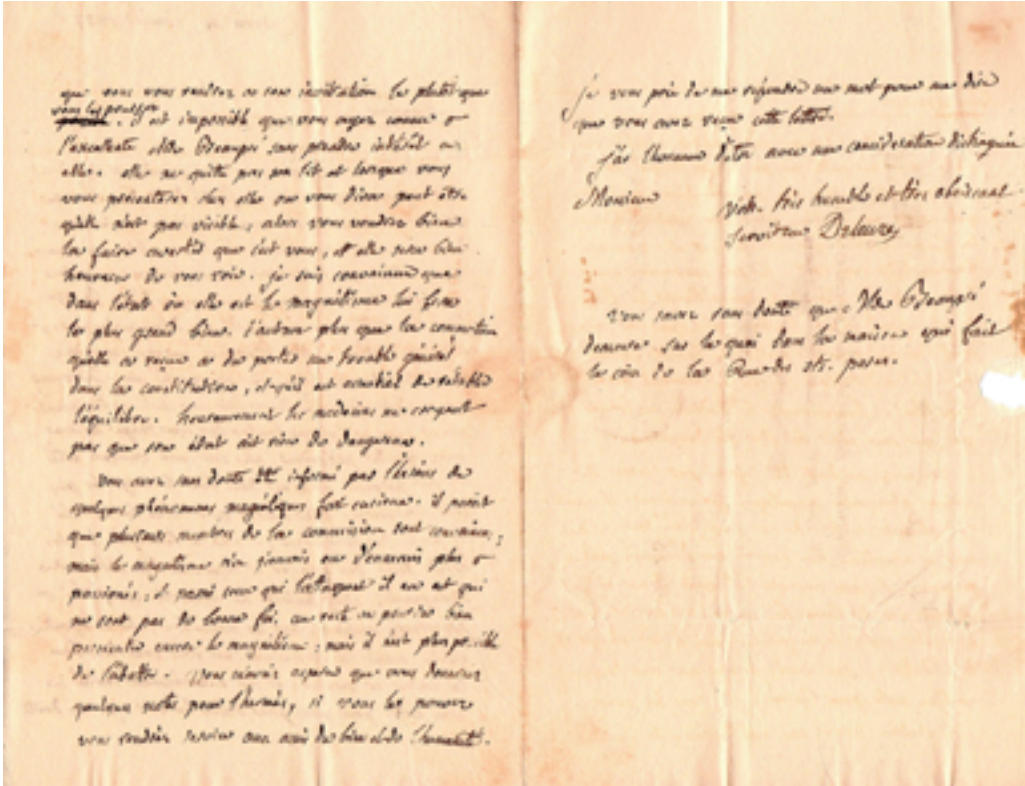 que vous vous rendiez a son invitation le plutôt que
vous les pourrez. il est impossible que vous ayez connu
l'excellente Mlle Beaupré sans prendre intérêt a
elle. elle ne quitte pas son lit et lorsque vous
vous présenterez chez elle on vous dira peut être
qu'elle n'est pas visible, alors vous voudrez bien
la faire avertir que c'est vous, et elle sera bien
heureuse de vous voir. je suis convaincu que
dans l'état où elle est le magnétisme lui fera
le plus grand bien. d'autant plus que la commotion
qu'elle a reçue a du porter un trouble général
dans la constitution, et qu'il est essentiel de rétablir
l'équilibre. heureusement les médecins ne croyent
pas que son état ait rien de dangereux.
Vous avez sans doute été informé par l'hermès de
quelques phénomènes magnétiques fort curieux. il paroit
que plusieurs membres de la commission sont convaincus;
mais le magnétisme n'a jamais eu d'ennemis plus
passionés, et parmi ceux qui l'attaquent il en est qui
ne sont pas de bonne foi. au reste on pourra bien
persecuter encore le magnétisme; mais il n'est plus possible
de l'abattre. vous m'aviez espérer que vous donneriez
quelques notes pour l'hermès, si vous le pouvez
vous rendrez service aux amis du bien et de l'humanité.
je vous prie de me répondre un mot pour me dire
que vous avez reçu cette lettre.
j'ai l'honneur d'être avec une considération distinguée
Monsieur
votre très humble et très obéissant
serviteur Deleuze
Vous savez sans doute que Mlle Beaupré
demeure sur le quai dans la maison qui fait
le coin de la Rue des Sts. peres.